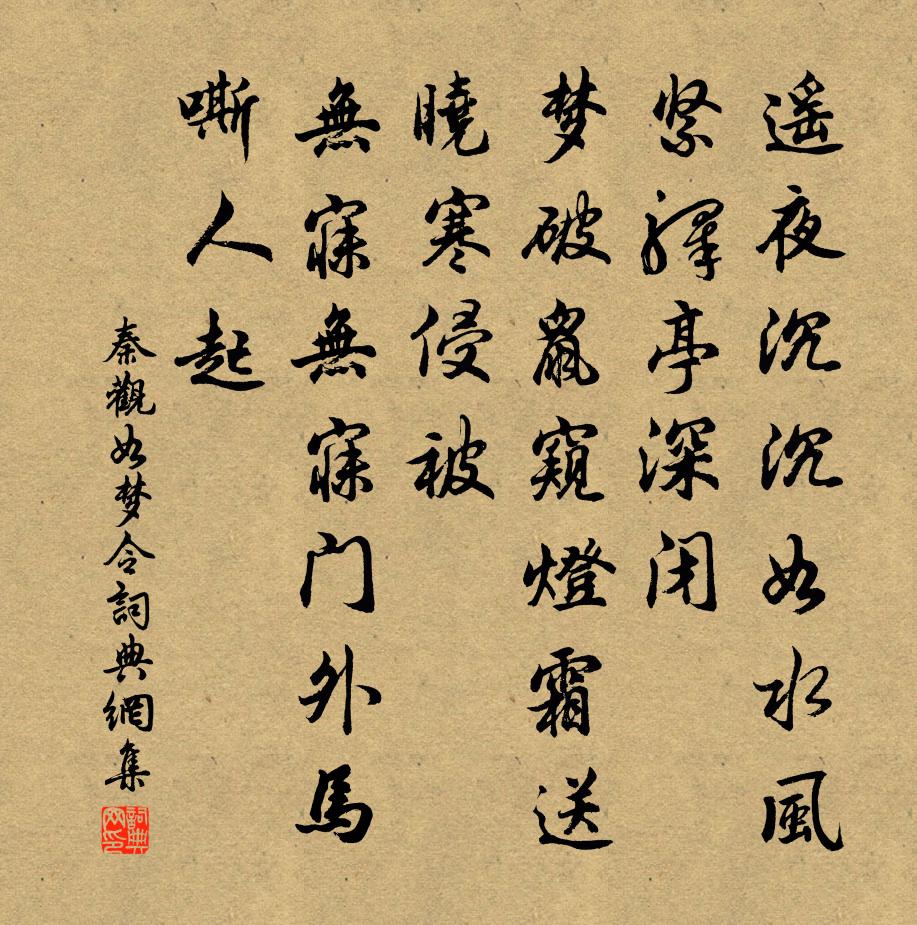 遥夜沉沉如水風
紧驛亭深闭
梦破鼠窺燈霜送
曉寒侵被
無寐無寐门外馬
嘶人起
秦觀如梦令詞典網集
詞典网印